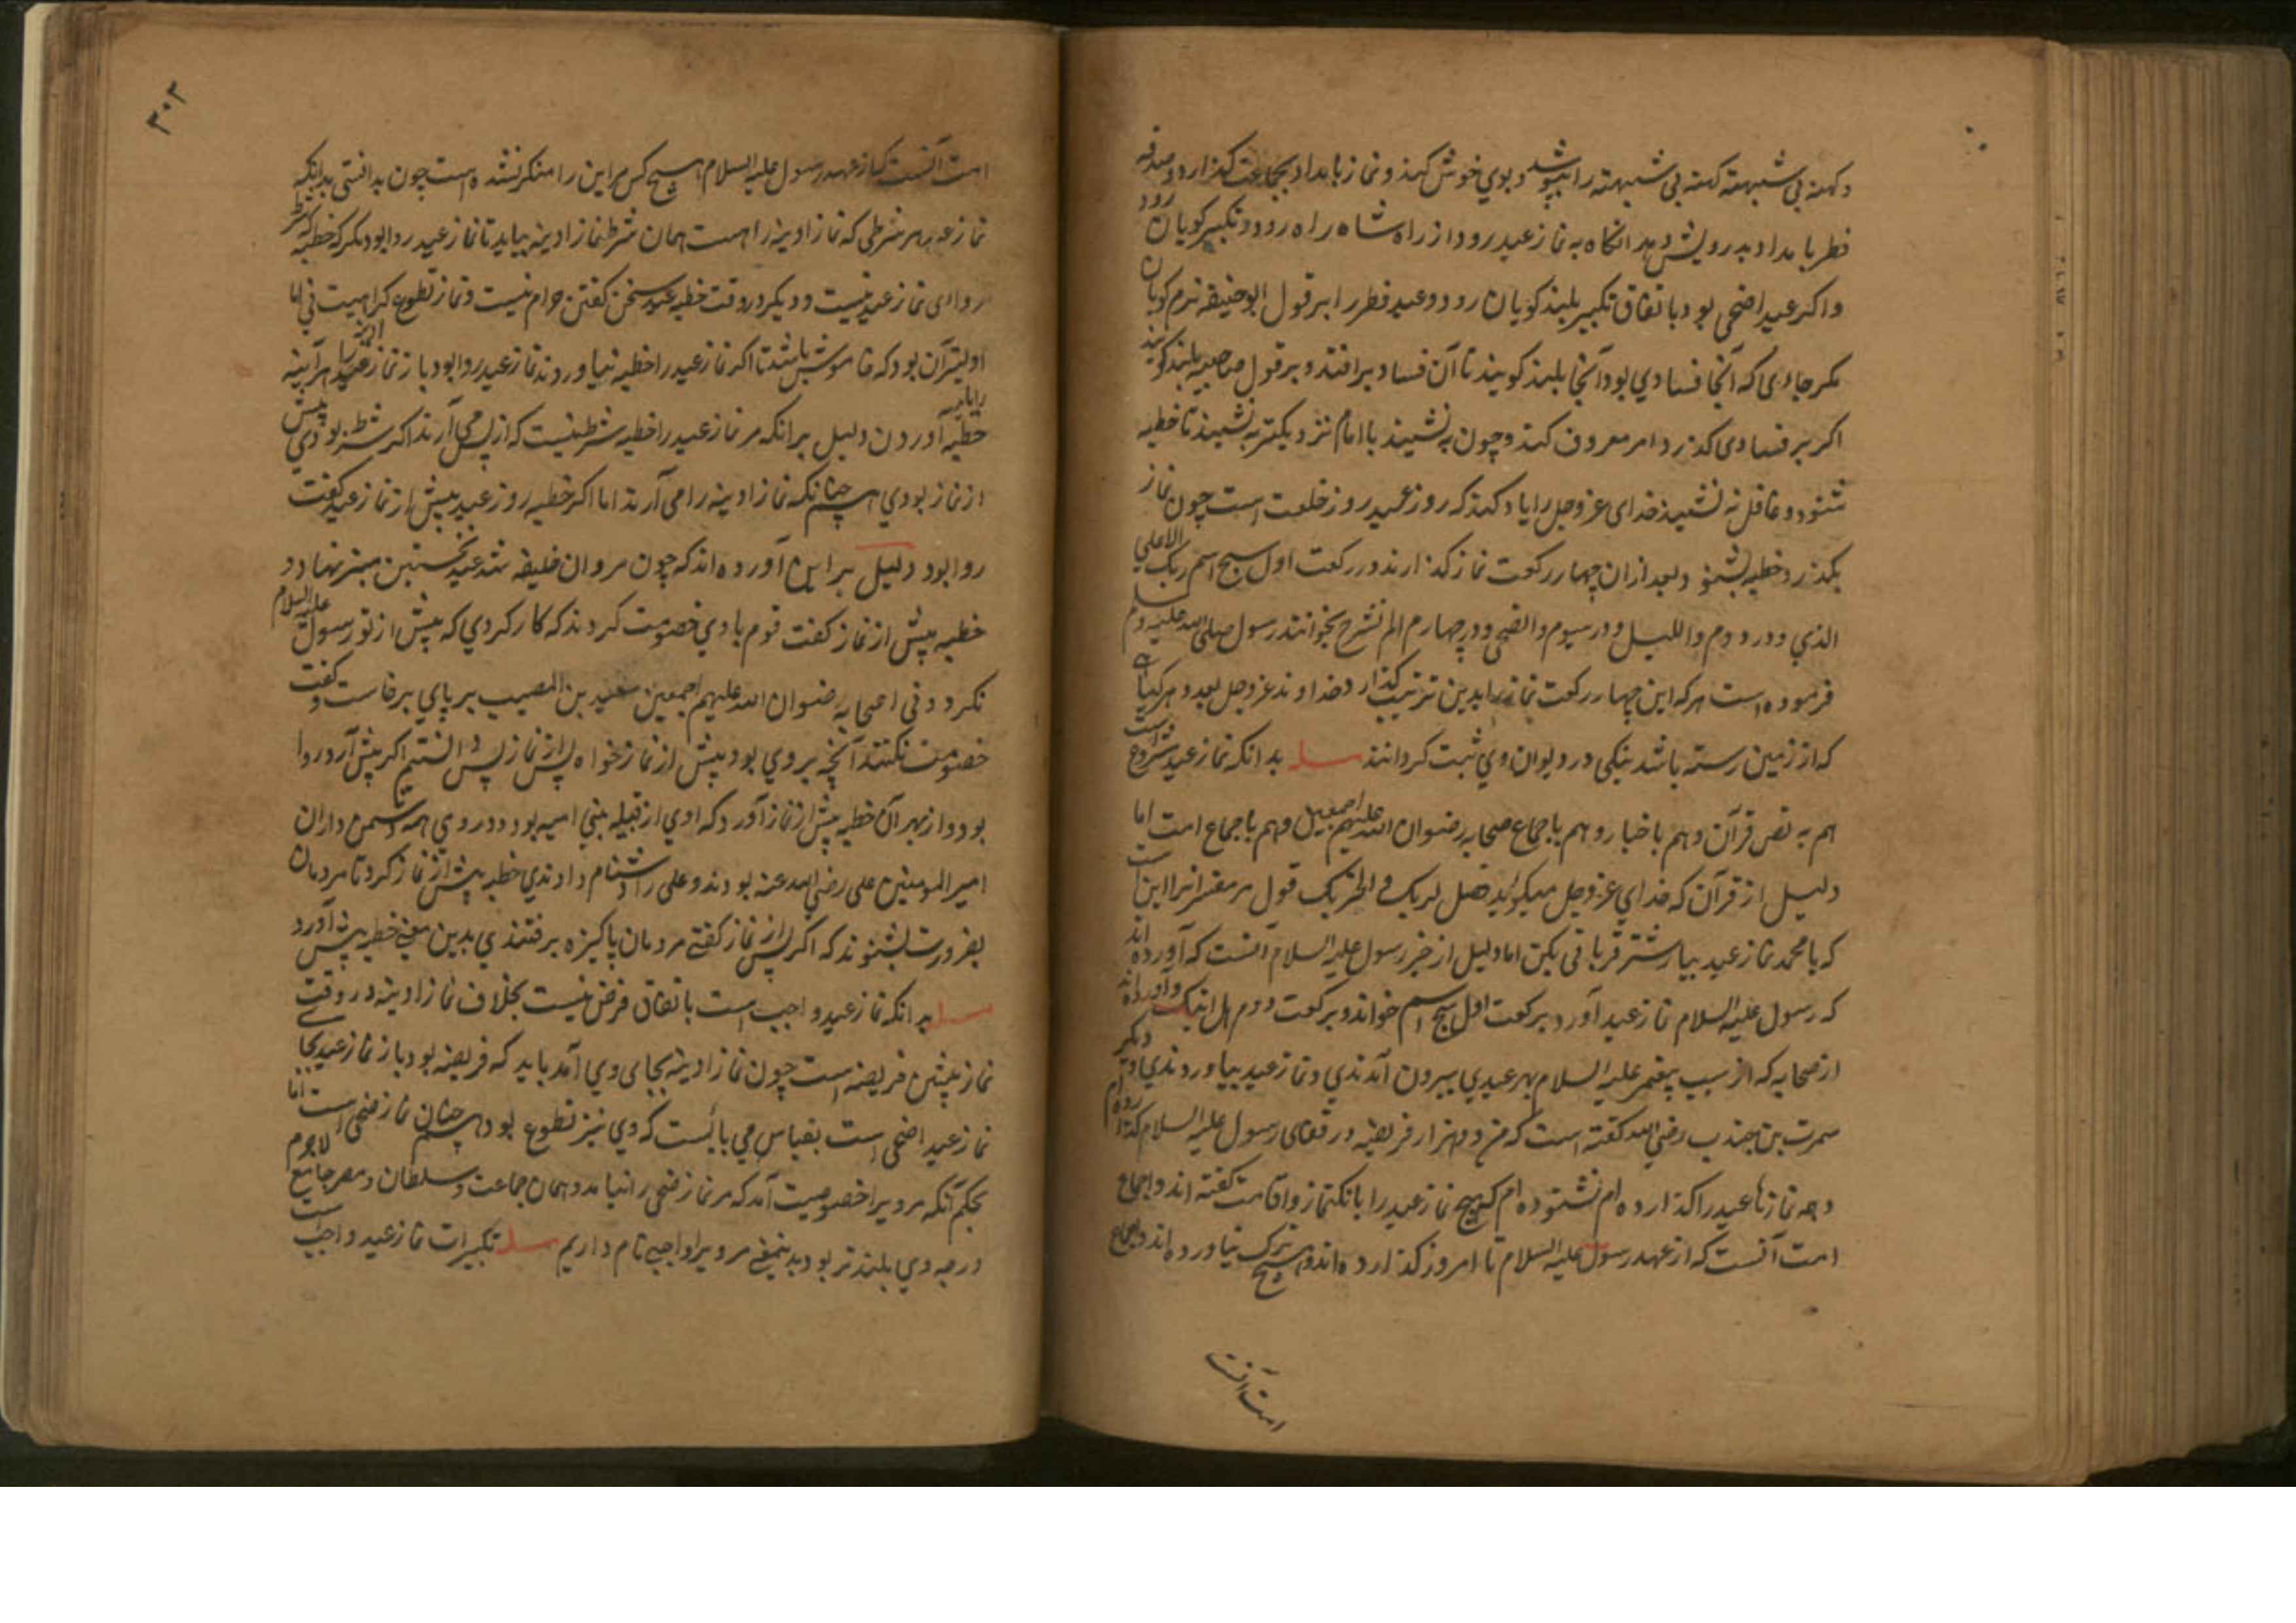 و کهنه بی شبهته کهنه بی شبهته را بپوشد و بوی خوش کند و نماز بامداد بجماعت گذارد و صدقه
فطر بامداد بدرویش دهد انگاه به نماز عید رود از راه شاه راه رود و تکبیر کویان رود
واکر عید اضحی بود باتفاق تکبیر بلند کویان رود و عید فطر را بر قول ابوحنیفه نرم کویان
مکر جاءی که آنجا فسادی بود آنجا بلند کویند تا آن فساد برافتد و بر قول صاحبیه بلند کویند
اکر بر فسادی کذرد امر معروف کند و چون بنشیند با امام نزدیکتر بنشیند تا خطبه
شنود و غافل نه نشیند خدای عزوجل را یاد کند که روز عید روز خلعت است چون نماز
بکذرد خطبه بشنو وبعد ازان چهار رکعت نماز کذارند در رکعت اول سبح اسم ربک الاعلی
الذی و در دوم واللیل و در سیوم والضحی و در چهارم الم نشرح بخوانند رسول صلی الله علیه وسلم
فرموده است هرکه این چهار رکعت نماز را بدین ترتیب کذارد خداوند عزوجل بعدد هر کیاهی
که از زمین رسته باشد نیکی در دیوان وی ثبت کردانند مسله بدانکه نماز عید مشروع است
هم به نص قرآن و هم باخبار و هم باجماع صحابه رضوان الله علیهم اجمعین و هم باجماع امت اما
دلیل از قرآن که خدای عزوجل میکوید فصل لربک وانحر یک قول مر مفسرانرا این است
که یا محمد نماز عید بیار شتر قربانی بکن اما دلیل از خبر رسول علیه السلام آنست که آورده اند
که رسول علیه السلام نماز عید آورد برکعت اول سبح اسم خواند و برکعت دوم هل اتیک و آورده اند
از صحابه که از سبب پیغمبر علیه السلام بهر عیدی بیرون آمدندی و نماز عید بیاوردندی و دیکر
سمرت بن جندب رضی الله کفته است که من دو هزار فریضه در قفای رسول علیه السلام کذارده ام
و همه نمازهاء عید را کذارده ام نشنوده ام که هیچ نماز عید را بانکنماز و اقامت کفته اند و اجماع
امت آنست که از عهد رسول علیه السلام تا امروز کذارده اند و هیچ ترک نیاورده اند و اجماع
امت آنست
۳۰۲
امت آنست که از عهد رسول علیه السلام هیچ کس مر این را منکر نشده است چون بدانستی بدانکه
نماز عید هر شرطی که نماز ادینه را هست همان شرط نماز ادینه بیاید تا نماز عید روا بود مکر که خطبه که شرط
رواای نماز عید نیست و دیکر در وقت خطبه عید سخن کفتن حرام نیست و نماز تطوع کراهیت نی اما
اولیتر آن بود که خاموش باشند تا اکر نماز عید را خطبه نیاوردند نماز عید روا بود باز نماز ادینه را هرآیینه
خطبه آوردن دلیل بر انکه مر نماز عید را خطبه شرط نیست که از پس می آرند اکر شرط بودی پیش
از نماز بودی همچنانکه نماز ادینه را می آرند اما اکر خطبه روز عید پیش از نماز عید کفت
روا بود دلیل بر این آورده اند که چون مروان خلیفه شد عید نخستین منبر نهاد و
خطبه پیش از نماز کفت قوم با وی خصومت کردند که کار کردی که پیش از تو رسول علیه السلام
نکرد و نی اصحابه رضوان الله علیهم اجمعین سعید بن المصیب بر پای برخاست و کفت
خصومت نکنند آنچه بر وی بود پیش از نماز خواه پس از نماز پس دانستیم اکر پیش آرد روا
بود و از بهر آن خطبه پیش از نماز آورد که اوی از قبیله بنی امیه بود و در وی همه دشمن داران
امیر المومنین علی رضی الله عنه بودند و علی را دشنام دادندی خطبه پیش از نماز کرد تا مردمان
بضرورت بشنوند که اکر پس از نماز کفتی مردمان پاکیزه برفتندی بدین معنی خطبه پیش آورد
مسله بدانکه نماز عید واجب است باتفاق فرض نیست بخلاف نماز ادینه در وقت
نماز پیشین فریضه است چون نماز ادینه بجای وی آمد باید که فریضه بود باز نماز عید بجای
نماز عید اضحی است بقیاس می بایست که وی نیز تطوع بود همچنان نماز ضحی است اما
بحکم آنکه مر ویرا خصوصیت آمد که مر نماز ضحی را نیامد و همان جماعت و سلطان و مصر جامع لاجرم
درجه وی بلندتر بود بدینمعنی مر ویرا واجب نام داریم مسله تکبیرات نماز عید واجب است